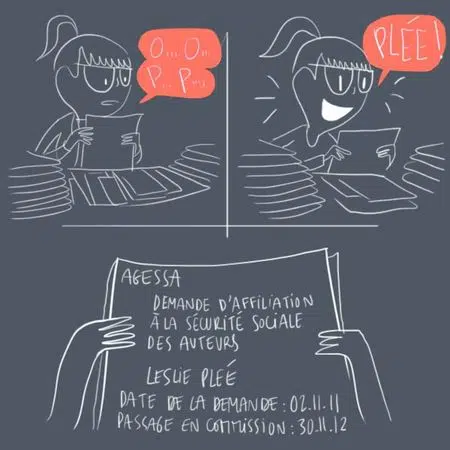 O... O...
P... P....
PLÉÉ!
AGESSA
DEMANDE D'AFFILIATION
À LA SÉCURITÉ SOCIALE
DES AUTEURS
LESLIE PLEÉ
DATE DE LA DEMANDE : 02.11.11
PASSAGE EN COMMISSION : 30.11.12